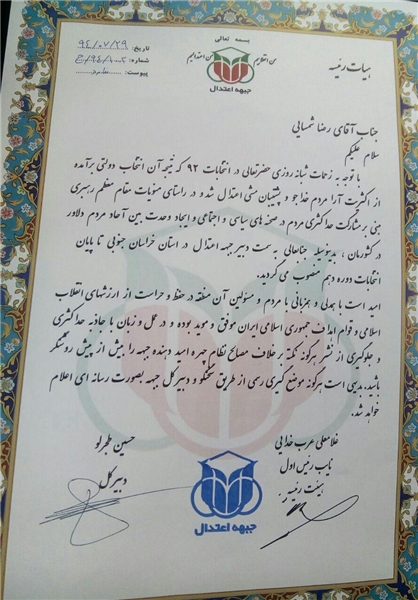 بسمه تعالی
تاریخ: ۹۴/۰۷/۲۹
شماره:
پیوست:
هیات رئیسه
جبهه اعتدال
جناب آقای رضا شمسایی
سلام علیکم
با توجه به زحمات شبانه روزی حضرتعالی در انتخابات ۹۲ که نتیجه آن انتخاب دولتی برآمده
از اکثریت آرا مردم خداجو و پشتیبان مشی اعتدال شد و در راستای منویات مقام معظم رهبری
مبنی بر مشارکت حداکثری مردم در صحنه های سیاسی و اجتماعی و ایجاد وحدت بین آحاد مردم دلاور
در کشورمان ، بدینوسیله جنابعالی به سمت دبیر جبهه اعتدال در استان خراسان جنوبی تا پایان
انتخابات دوره دهم منصوب می گردید.
امید است با همدلی و همزبانی با مردم و مسئولین آن منطقه در حفظ و حراست از ارزشهای انقلاب
اسلامی و قوام اهداف جمهوری اسلامی ایران موفق و موید بوده و در عمل و زبان با جاذبه حداکثری
و جلوگیری از نشر هرگونه نکته بر خلاف مصالح نظام چهره امید دهنده جبهه را بیش از پیش روشنگر
باشید. بدیهی است هرگونه موضع گیری رسمی از طریق سخنگو و دبیر کل جبهه بصورت رسانه ای اعلام
خواهد شد.
غلامعلی عرب خدایی
نایب رئیس اول
هیئت رئیسه
حسین طجرلو
دبیر کل
جبهه اعتدال